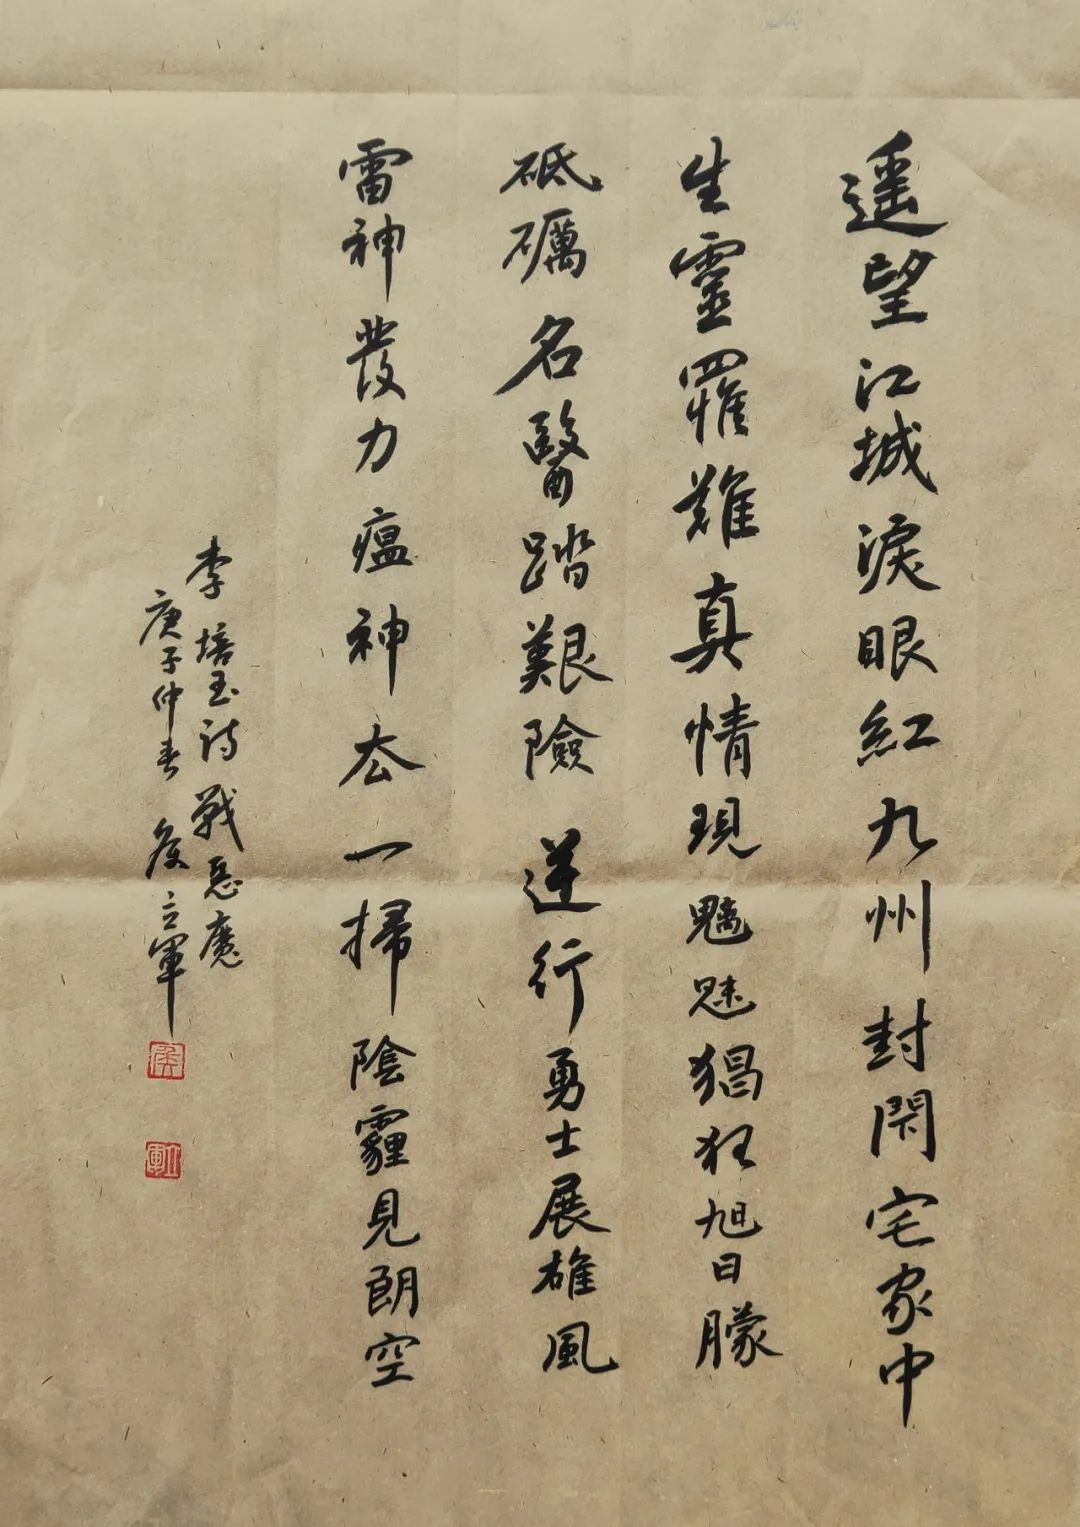 遥望江城淚眼紅九州封閇宅家中
生靈罹難真情現魑魅猖狂旭日朦
砥礪名醫踏艱險逆行勇士展雄風
雷神發力瘟神厺一掃陰霾見朗空
李培玉诗戰惡魔
庚子仲春侯立軍
侯
立軍